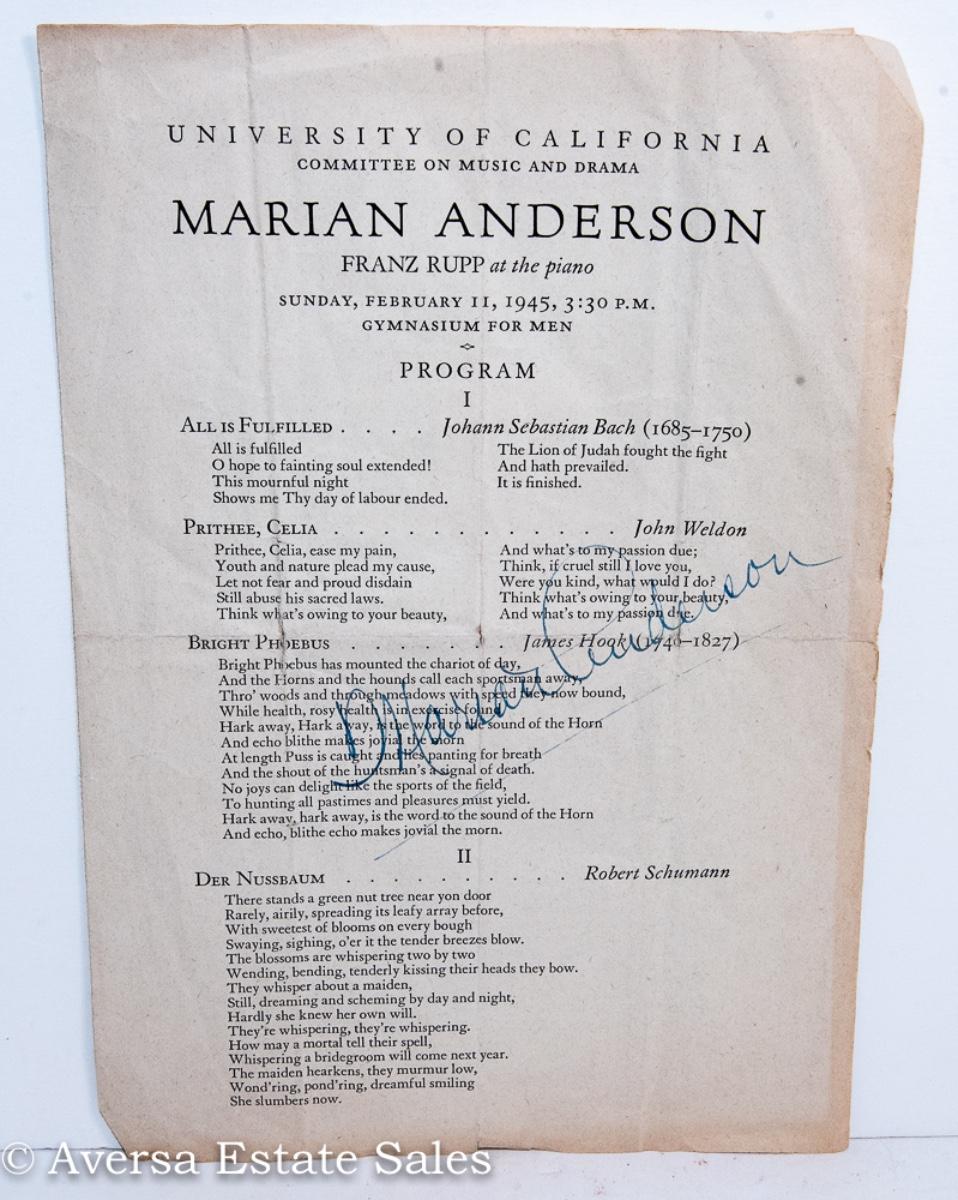 UNIVERSITY OF CALIFORNIA
COMMITTEE ON MUSIC AND DRAMA
MARIAN ANDERSON
FRANZ RUPP at the piano
SUNDAY, FEBRUARY 11, 1945, 3:30 P.M.
GYMNASIUM FOR MEN
PROGRAM
I
ALL IS FULFILLED . . . . Johann Sebastian Bach (1685–1750)
All is fulfilled
O hope to fainting soul extended!
This mournful night
Shows me Thy day of labour ended.
The Lion of Judah fought the fight
And hath prevailed.
It is finished.
PRITHEE, CELIA . . . . . . . . . . . . John Weldon
Prithee, Celia, ease my pain,
Youth and nature plead my cause,
Let not fear and proud disdain
Still abuse his sacred laws.
Think what's owing to your beauty,
And what's to my passion due;
Think, if cruel still I love you,
Were you kind, what would I do?
Think what's owing to your beauty,
And what's to my passion due.
Marian Anderson
BRIGHT PHOEBUS . . . . . . . James Hook (1746–1827)
Bright Phoebus has mounted the chariot of day,
And the Horns and the hounds call each sportsman away,
Thro' woods and through meadows with speed they now bound,
While health, rosy health is in exercise found
Hark away, Hark away, is the word to the sound of the Horn
And echo blithe makes jovial the morn
At length Puss is caught and lies panting for breath
And the shout of the huntsman's a signal of death.
No joys can delight like the sports of the field,
To hunting all pastimes and pleasures must yield.
Hark away, hark away, is the word to the sound of the Horn
And echo, blithe echo makes jovial the morn.
II
DER NUSSBAUM . . . . . . . . . . Robert Schumann
There stands a green nut tree near yon door
Rarely, airily, spreading its leafy array before,
With sweetest of blooms on every bough
Swaying, sighing, o'er it the tender breezes blow.
The blossoms are whispering two by two
Wending, bending, tenderly kissing their heads they bow.
They whisper about a maiden,
Still, dreaming and scheming by day and night,
Hardly she knew her own will.
They're whispering, they're whispering.
How may a mortal tell their spell,
Whispering a bridegroom will come next year.
The maiden hearkens, they murmur low,
Wond'ring, pond'ring, dreamful smiling
She slumbers now.
© Aversa Estate Sales